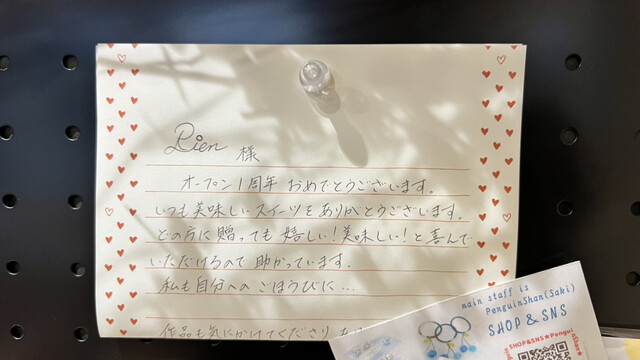 Rien 様
オープン1周年 おめでとうございます。
いつも美味しいスイーツを ありがとうございます。
どの方に 贈っても 嬉しい!美味しい!と喜んで
いただけるので 助かっています。
私も自分への ごほうびに…
作品も気にかけてくださり
main staff is
PenguinShan(Saki)
SHOP & SNS
SHOP&SNS★Penguin